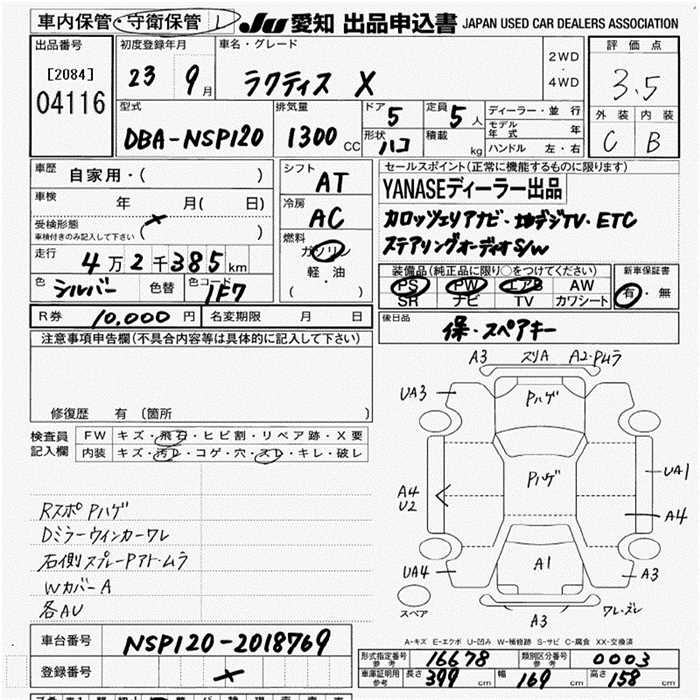 車内保管・守衛保管 1 JU 愛知 出品申込書 JAPAN USED CAR DEALERS ASSOCIATION
出品番号 初度登録年月 車名・グレード 評価点
[2084] 23 9月 ラクティス X 2WD・4WD 3.5
04116
型式 排気量 ドア 5 定員 5人 ディーラー・並行 外装 内装
DBA-NSP120 1300cc 形状 ハコ 積載 kg モデル年式 年 C B
ハンドル 左・右
車歴 自家用・( ) シフト AT セールスポイント(正常に機能するものに限ります)
車検 年 月( 日) 冷房 AC YANASEディーラー出品
受検形態 車検付きのみ記入して下さい ( ) 燃料 ガソリン カロッツェリアナビ・地デジTV・ETC
走行 4万2千385km 軽・油 ステアリングオーディオS/W
色 シルバー 色替 色コード 1F7 ( ) 装備品(純正品に限り○をつけてください) 新車保証書
PS PW エアB AW 有・無
SR ナビ TV カワシート
R券 10,000円 名変期限 月 日 後日品 保・スペアキー
注意事項申告欄(不具合内容等は具体的に記入して下さい)
修復歴 有 (箇所 )
検査員記入欄 FW キズ・飛石・ヒビ割・リペア跡・X要
内装 キズ・汚レ・コゲ・穴・スレ・キレ・破レ
A3 スリA A2・Pムラ
UA3 Pハゲ
Pハゲ UA1
A4 U2 A4
UA4 A1 A3
スペア A3 ワレ・ズレ
RスポPハゲ
Dミラーウィンカーワレ
右側スプレーPアト・ムラ
WカバーA
各AU
A-キズ E-エクボ U-凹み W-補修跡 S-サビ C-腐食 XX-交換済
車台番号 NSP120-2018769
登録番号
形式指定番号 参考 16678 類別区分番号 参考 0003
車庫証明用 参考 長さ 399cm 幅 169cm 高さ 158cm